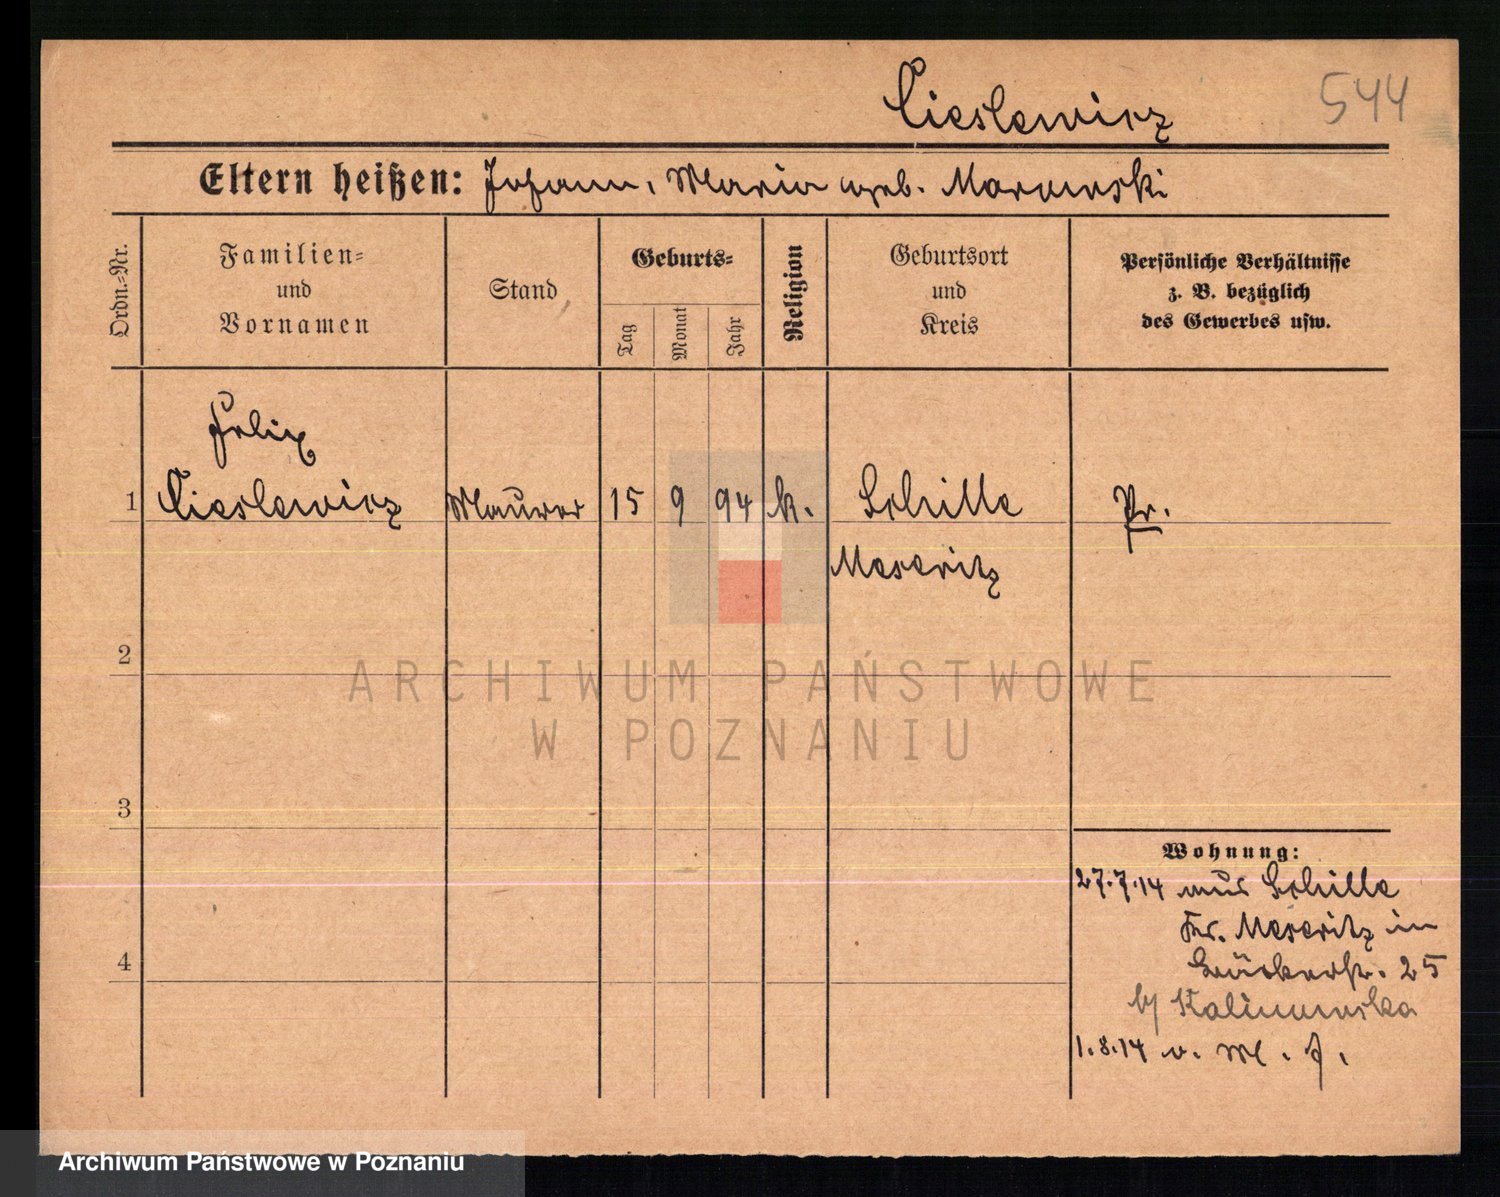 Cieslewicz
544
Eltern heißen: Johann, Maria geb. Morawski
Ordn.=Nr.
Familien=
und
Vornamen
Stand
Geburts=
Tag
Monat
Jahr
Religion
Geburtsort
und
Kreis
Persönliche Verhältnisse
z. B. bezüglich
des Gewerbes usw.
Felix
1 Cieslewicz Maurer 15 9 94 k. Schilln Pr.
Meseritz
2
ARCHIWUM PAŃSTWOWE
W POZNANIU
3
Wohnung:
27.7.14 aus Schilln
Kr. Meseritz in
25
4
b/ Kalinowska
1.8.14 v.
Archiwum Państwowe w Poznaniu